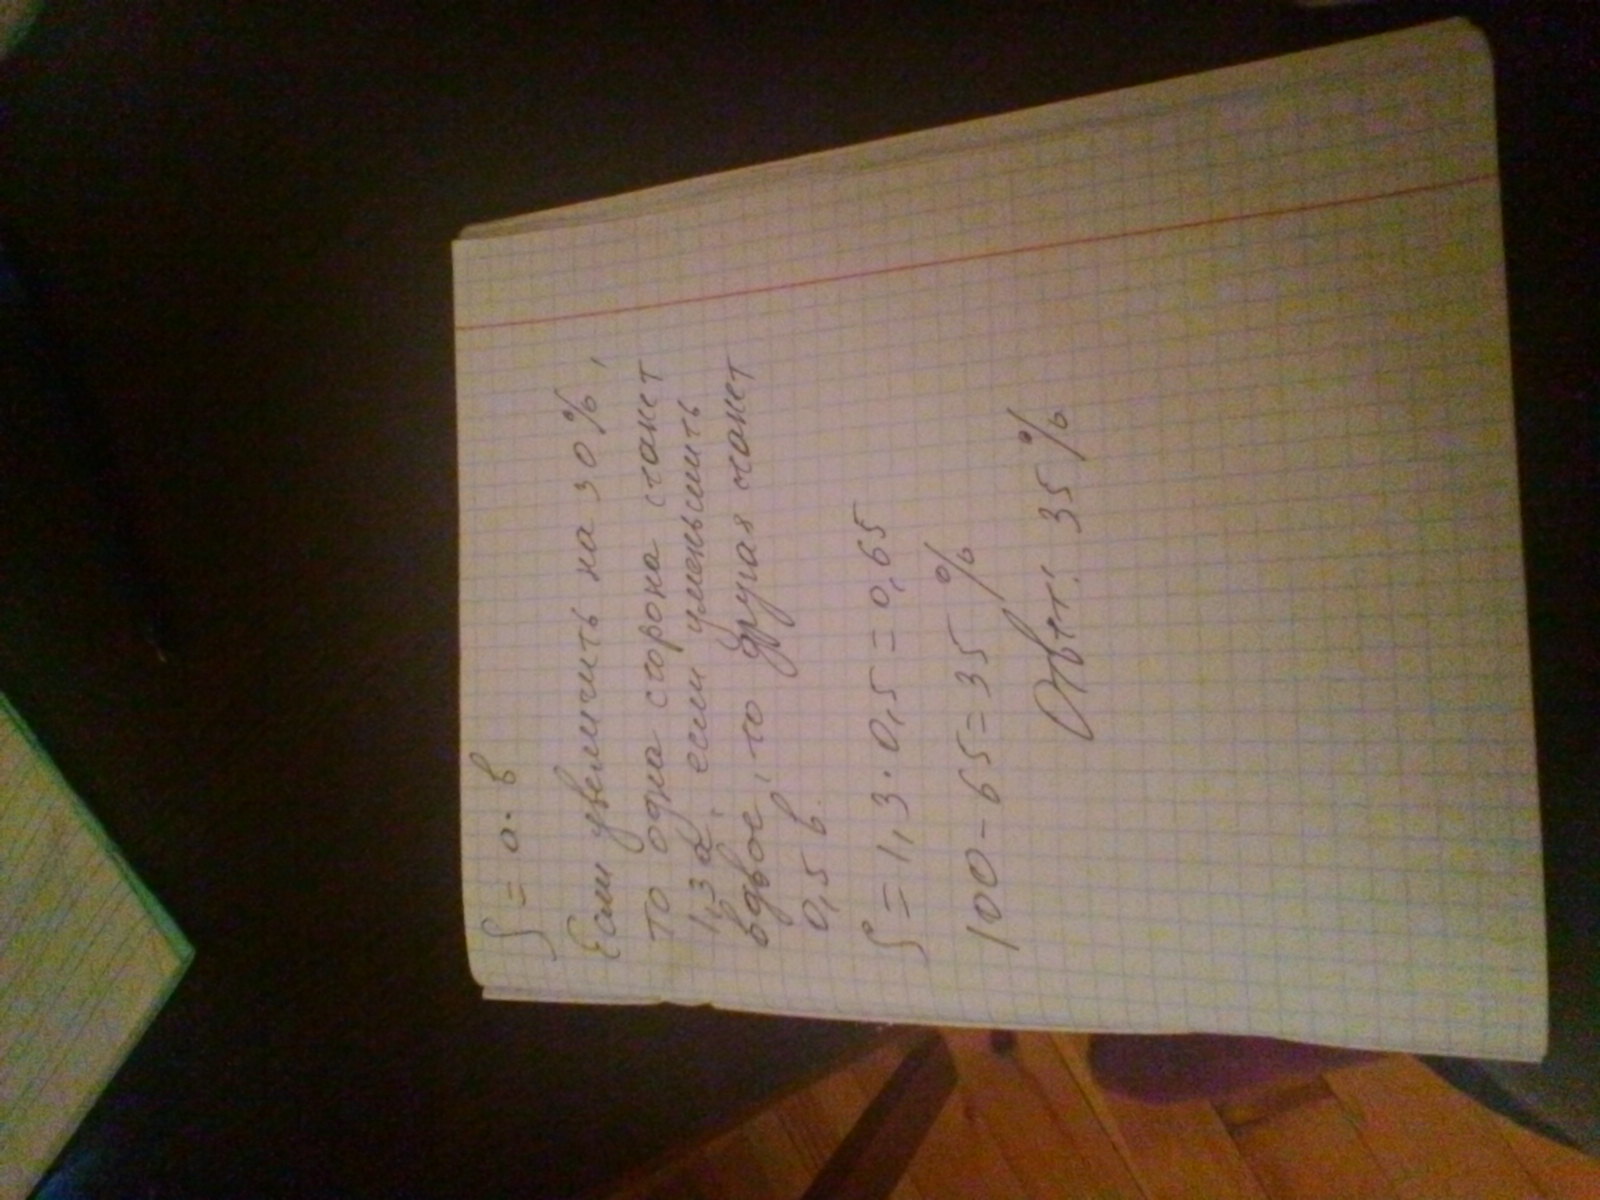 S = a · в
Если увеличить на 30%,
то одна сторона станет
1,3 а, если уменьшить
вдвое, то другая станет
0,5 в.
S = 1,3 · 0,5 = 0,65
100 - 65 = 35 %
Ответ: 35 %